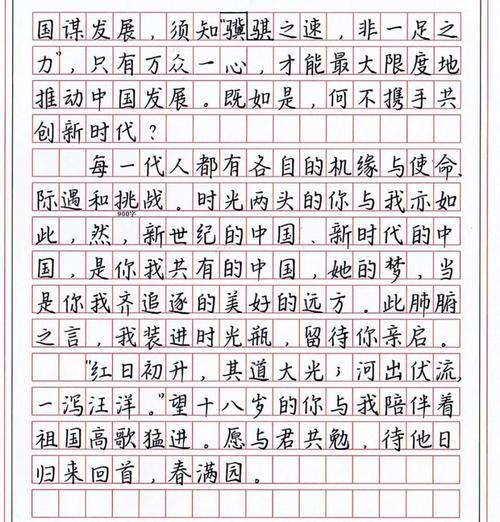 国谋发展，须知“骥骐之速，非一足之
力”，只有万众一心，才能最大限度地
推动中国发展。既如是，何不携手共
创新时代？
每一代人都有各自的机缘与使命，
际遇和挑战。时光两头的你与我亦如
900字
此，然，新世纪的中国、新时代的中
国，是你我共有的中国，她的梦，当
是你我齐追逐的美好的远方。此肺腑
之言，我装进时光瓶，留待你亲启。
“红日初升，其道大光；河出伏流，
一泻汪洋。”望十八岁的你与我陪伴着
祖国高歌猛进。愿与君共勉，待他日
归来回首，春满园。